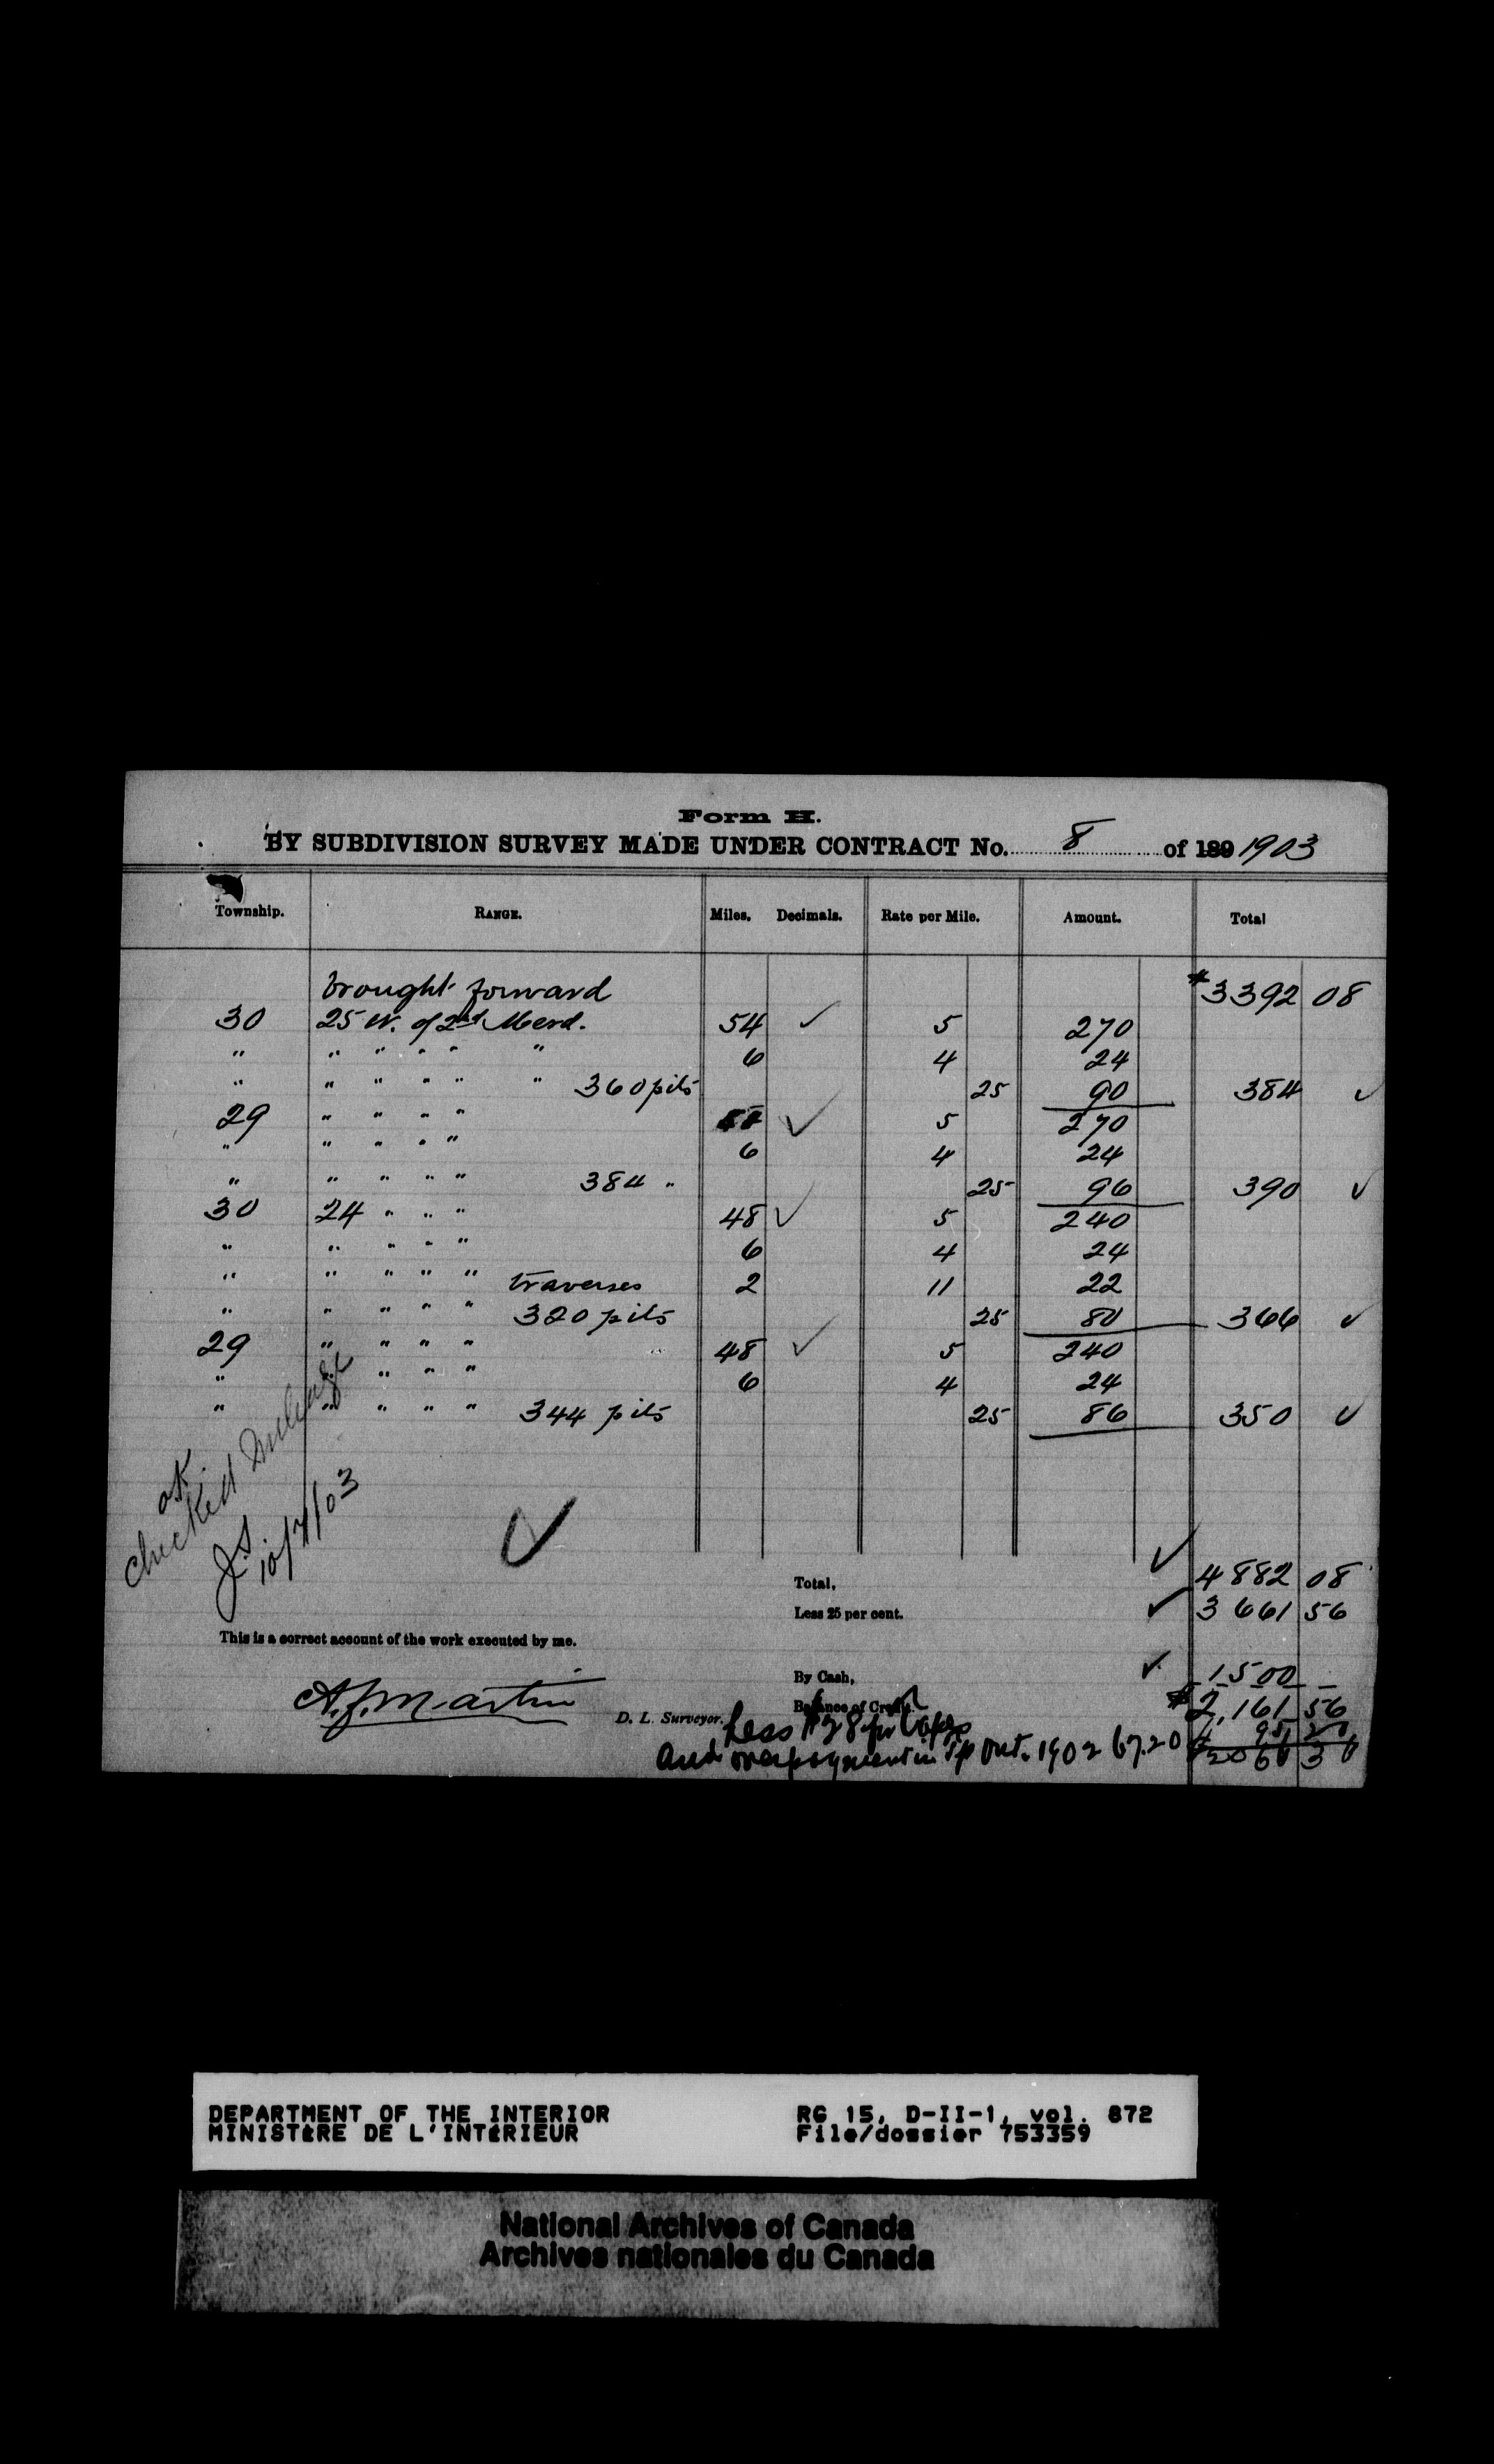 Form H.
BY SUBDIVISION SURVEY MADE UNDER CONTRACT No. 8 of 189 1903
Township. RANGE. Miles. Decimals. Rate per Mile. Amount. Total
brought forward $3392 08
30 25 W. of 2nd Merd. 54 ✓ 5 270
" " " " " " 6 4 24
" " " " " " 360 pits 25 90 384 ✓
29 " " " " 54 ✓ 5 270
" " " " " 6 4 24
" " " " " 384 " 25 96 390 ✓
30 24 " " " 48 ✓ 5 240
" " " " " 6 4 24
" " " " " traverses 2 11 22
" " " " " 320 pits 25 80 366 ✓
29 " " " " 48 ✓ 5 240
" " " " " 6 4 24
" " " " " 344 pits 25 86 350 ✓
ok
checked mileage
J.S
10/7/03
✓
Total, ✓ 4882 08
Less 25 per cent. ✓ 3661 56
This is a correct account of the work executed by me.
By Cash, ✓ 1500 —
A.J. Martin
D. L. Surveyor.
Balance of Credit $2,161 56
Less $28 for
and overpayment in 1902 67.20 95 20
DEPARTMENT OF THE INTERIOR
MINISTÈRE DE L'INTÉRIEUR
RG 15, D-II-1, vol. 872
File/dossier 753359
National Archives of Canada
Archives nationales du Canada